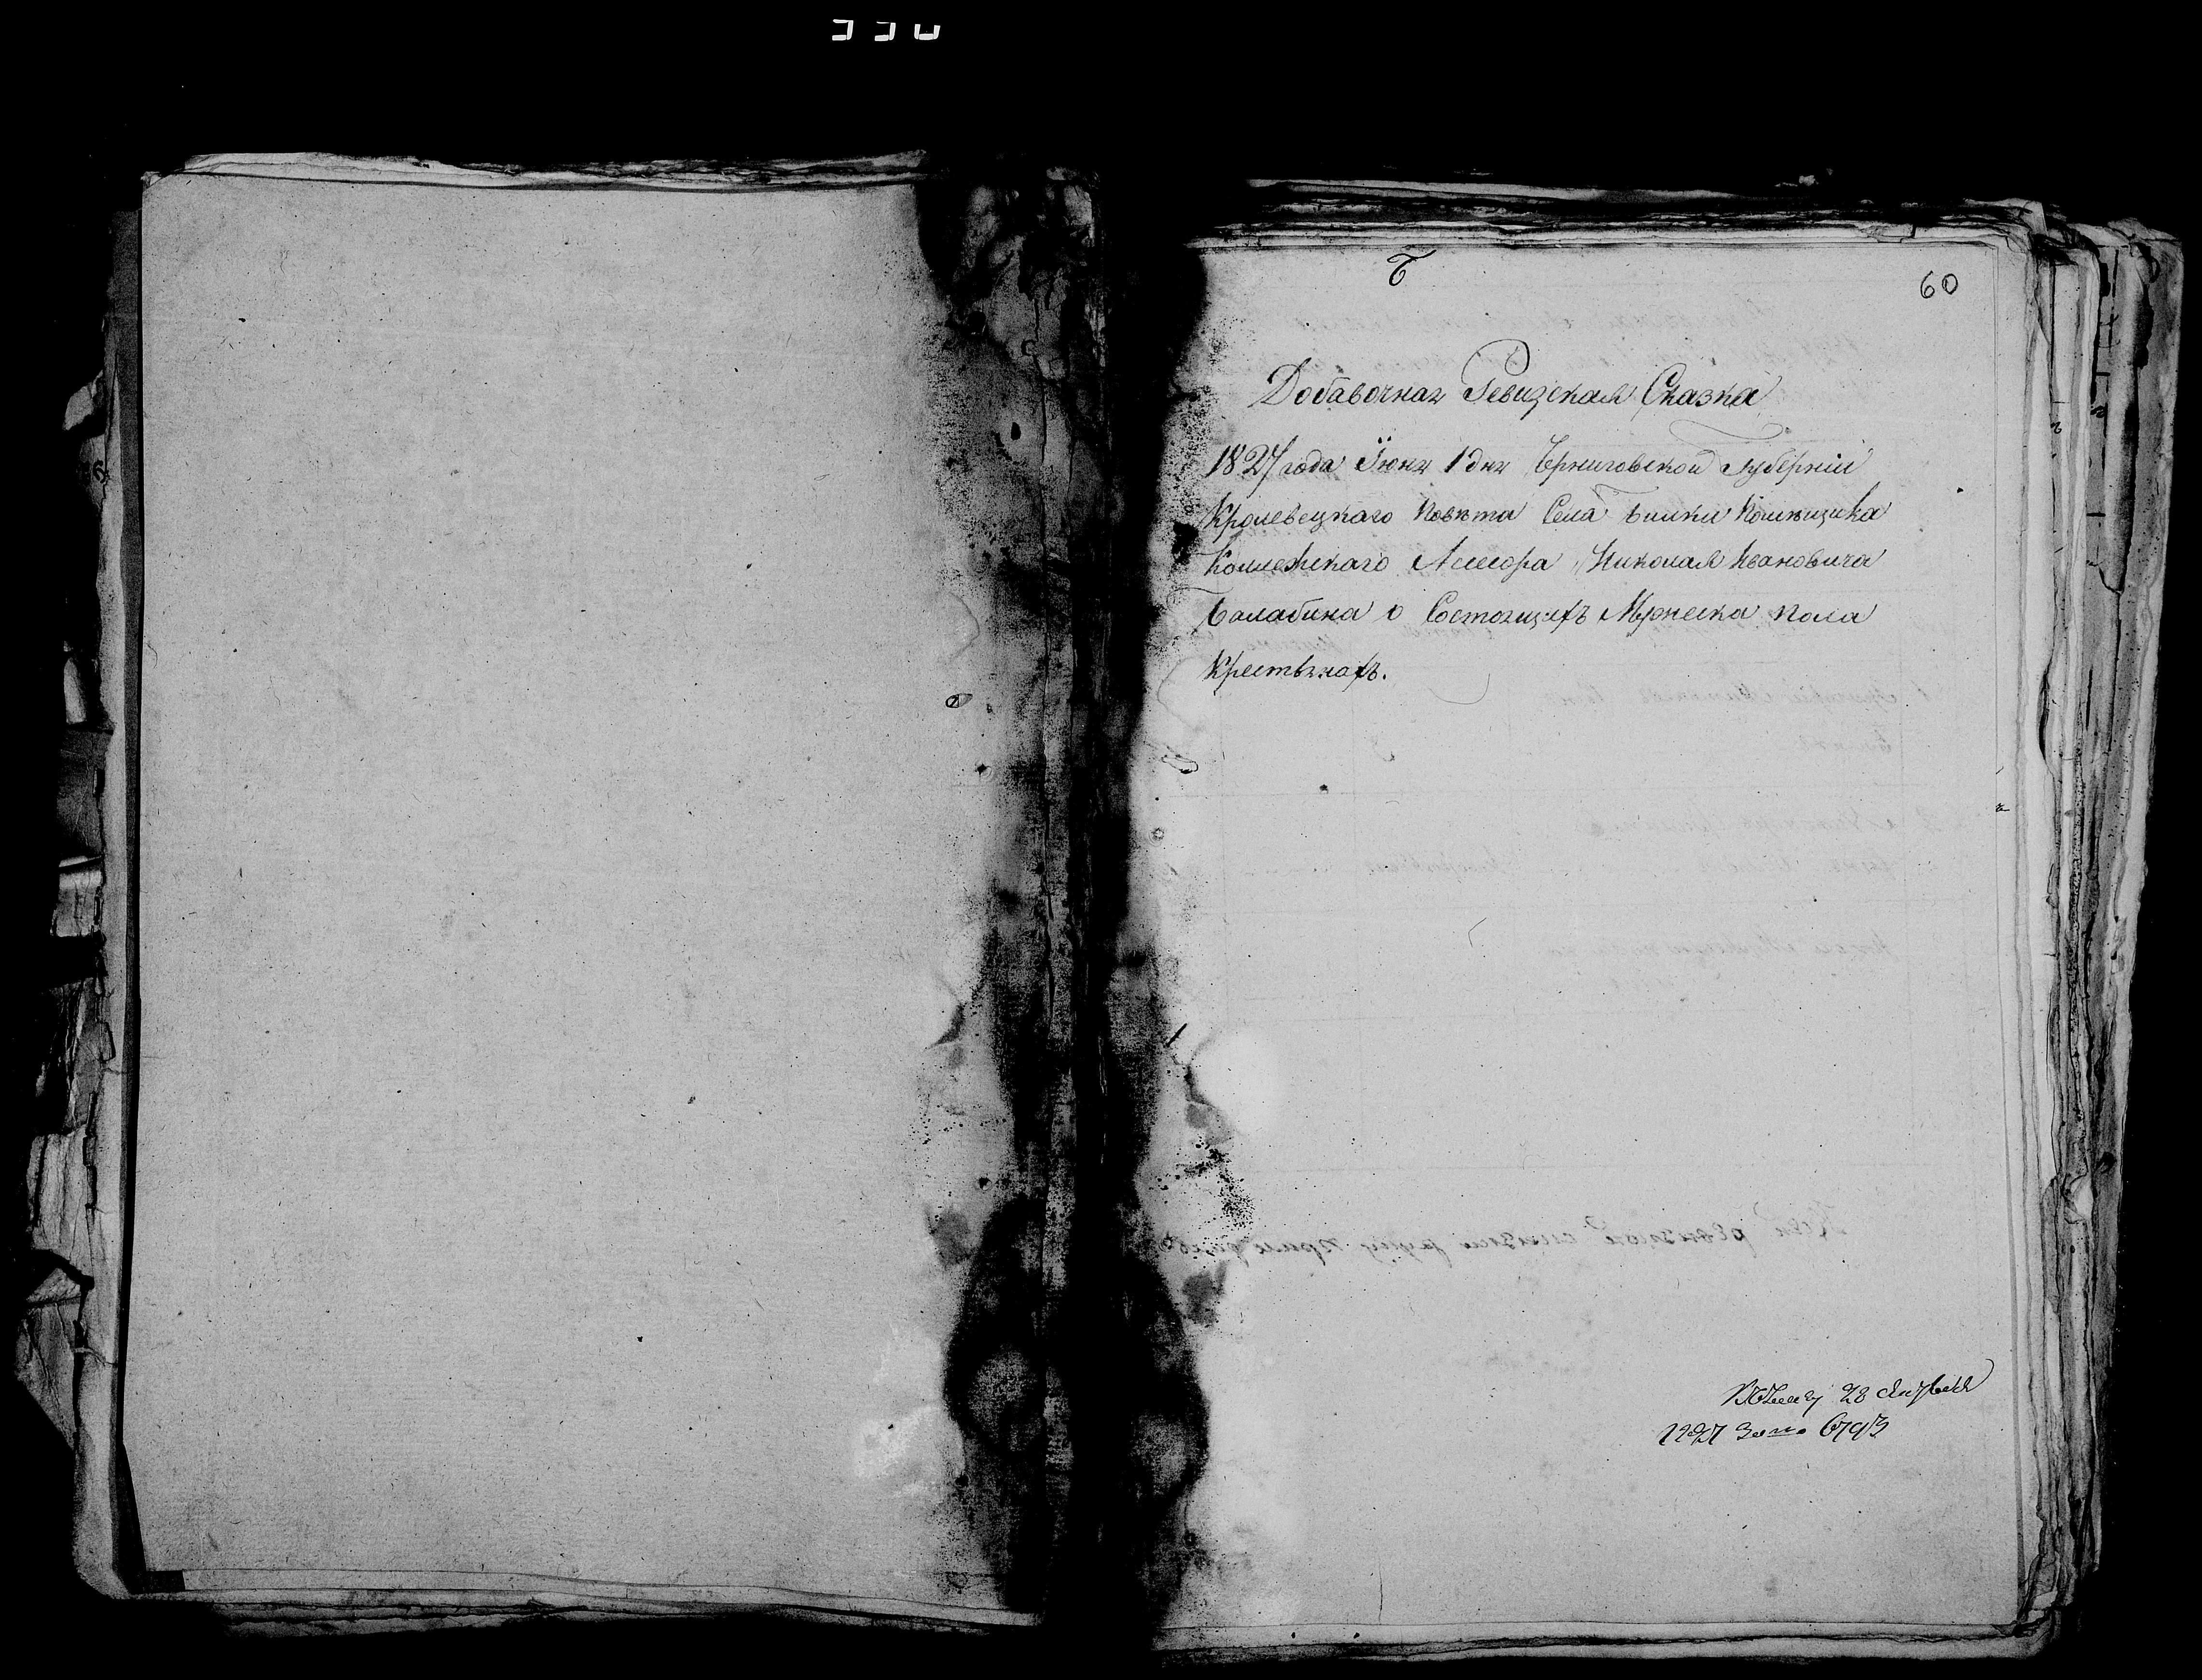 Б
60
Добавочная Ревизская Сказка
1827 года Июня 1 дня Черниговской Губернии
Кролевецкаго Повѣта Села Быики Помѣщика
Коллежскаго Асессора Николая Ивановича
Балабина о Состоящихъ Мужеска пола
Крестьянахъ.
28
1827 6793